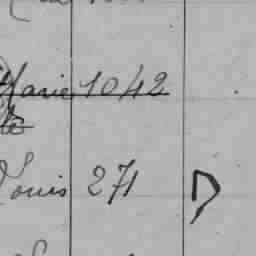 Marie 1042
Louis 271 D